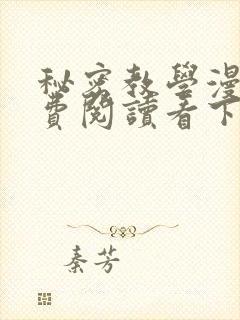 秘密教學漫
費閱讀看下
秦芳